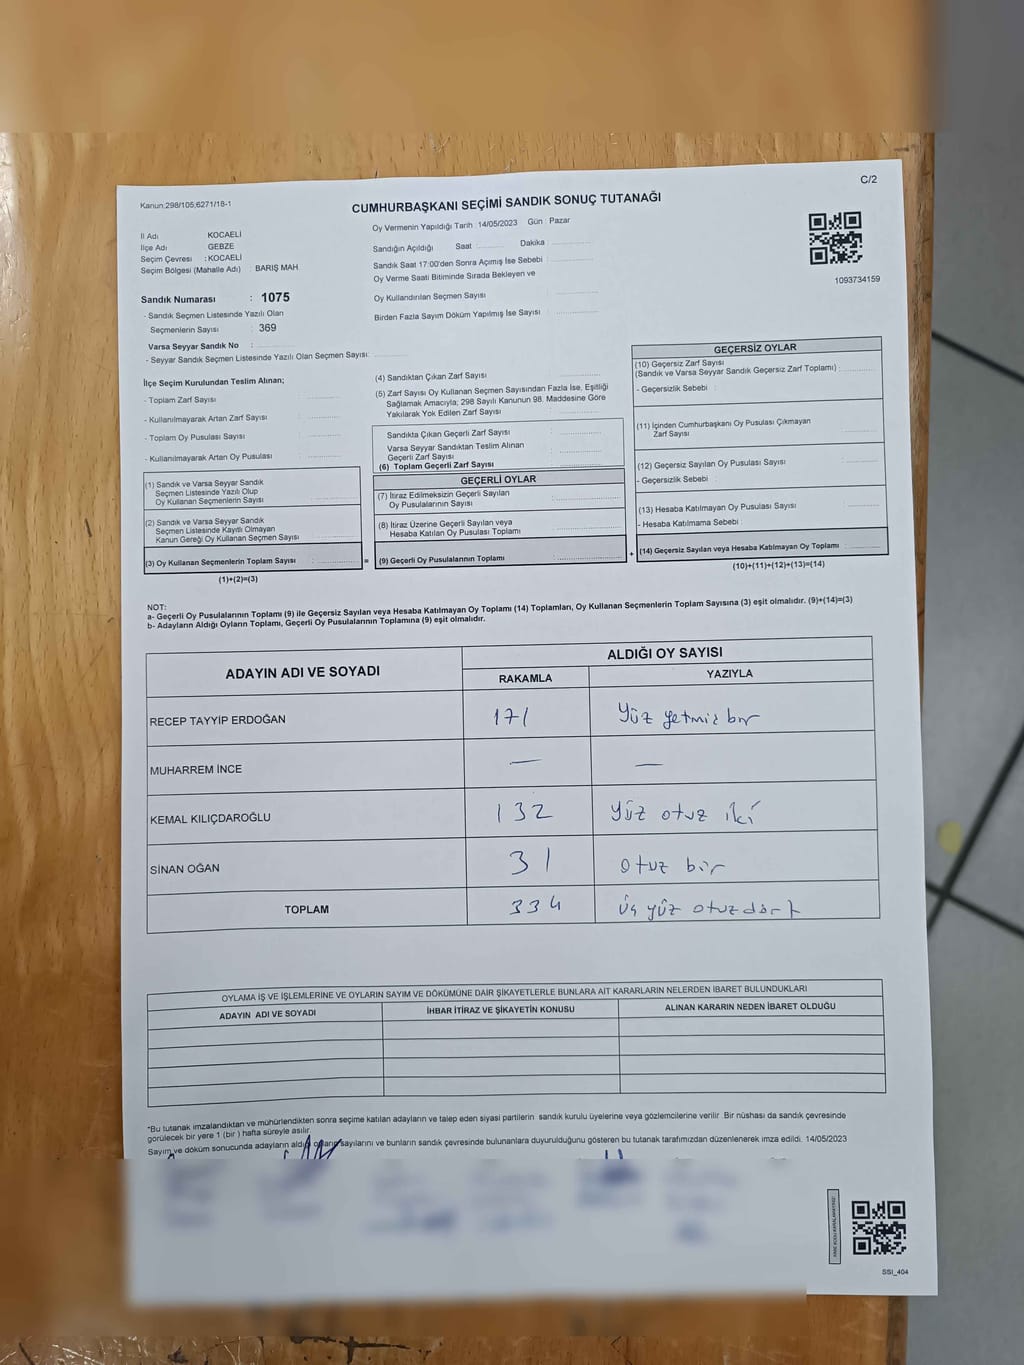 C/2
Kanun.298/105;6271/18-1
CUMHURBAŞKANI SEÇİMİ SANDIK SONUÇ TUTANAĞI
İl Adı KOCAELİ
İlçe Adı GEBZE
Seçim Çevresi : KOCAELİ
Seçim Bölgesi (Mahalle Adı) BARIŞ MAH
Oy Vermenin Yapıldığı Tarih 14/05/2023 Gün : Pazar
Sandığın Açıldığı Saat : Dakika :
Sandık Saat 17:00'den Sonra Açımış İse Sebebi :
Oy Verme Saati Bitiminde Sırada Bekleyen ve
Oy Kullandırılan Seçmen Sayısı :
Birden Fazla Sayım Döküm Yapılmış İse Sayısı :
1093734159
Sandık Numarası : 1075
- Sandık Seçmen Listesinde Yazılı Olan
Seçmenlerin Sayısı : 369
Varsa Seyyar Sandık No :
- Seyyar Sandık Seçmen Listesinde Yazılı Olan Seçmen Sayısı:
İlçe Seçim Kurulundan Teslim Alınan;
- Toplam Zarf Sayısı :
- Kullanılmayarak Artan Zarf Sayısı :
- Toplam Oy Pusulası Sayısı :
- Kullanılmayarak Artan Oy Pusulası :
(1) Sandık ve Varsa Seyyar Sandık
Seçmen Listesinde Yazılı Olup
Oy Kullanan Seçmenlerin Sayısı :
(2) Sandık ve Varsa Seyyar Sandık
Seçmen Listesinde Kayıtlı Olmayan
Kanun Gereği Oy Kullanan Seçmen Sayısı :
(3) Oy Kullanan Seçmenlerin Toplam Sayısı :
(1)+(2)=(3)
=
(4) Sandıktan Çıkan Zarf Sayısı :
(5) Zarf Sayısı Oy Kullanan Seçmen Sayısından Fazla İse, Eşitliği
Sağlamak Amacıyla; 298 Sayılı Kanunun 98. Maddesine Göre
Yakılarak Yok Edilen Zarf Sayısı :
Sandıkta Çıkan Geçerli Zarf Sayısı :
Varsa Seyyar Sandıktan Teslim Alınan
Geçerli Zarf Sayısı :
(6) Toplam Geçerli Zarf Sayısı :
GEÇERLİ OYLAR
(7) İtiraz Edilmeksizin Geçerli Sayılan
Oy Pusulalarının Sayısı :
(8) İtiraz Üzerine Geçerli Sayılan veya
Hesaba Katılan Oy Pusulası Toplamı :
(9) Geçerli Oy Pusulalarının Toplamı :
+
GEÇERSİZ OYLAR
(10) Geçersiz Zarf Sayısı
(Sandık ve Varsa Seyyar Sandık Geçersiz Zarf Toplamı) :
- Geçersizlik Sebebi :
(11) İçinden Cumhurbaşkanı Oy Pusulası Çıkmayan
Zarf Sayısı :
(12) Geçersiz Sayılan Oy Pusulası Sayısı :
- Geçersizlik Sebebi :
(13) Hesaba Katılmayan Oy Pusulası Sayısı :
- Hesaba Katılmama Sebebi :
(14) Geçersiz Sayılan veya Hesaba Katılmayan Oy Toplamı :
(10)+(11)+(12)+(13)=(14)
NOT:
a- Geçerli Oy Pusulalarının Toplamı (9) ile Geçersiz Sayılan veya Hesaba Katılmayan Oy Toplamı (14) Toplamları, Oy Kullanan Seçmenlerin Toplam Sayısına (3) eşit olmalıdır. (9)+(14)=(3)
b- Adayların Aldığı Oyların Toplamı, Geçerli Oy Pusulalarının Toplamına (9) eşit olmalıdır.
ADAYIN ADI VE SOYADI
ALDIĞI OY SAYISI
RAKAMLA YAZIYLA
RECEP TAYYİP ERDOĞAN 171 Yüz yetmiş bir
MUHARREM İNCE — —
KEMAL KILIÇDAROĞLU 132 Yüz otuz iki
SİNAN OĞAN 31 otuz bir
TOPLAM 334 üç yüz otuz dört
OYLAMA İŞ VE İŞLEMLERİNE VE OYLARIN SAYIM VE DÖKÜMÜNE DAİR ŞİKAYETLERLE BUNLARA AİT KARARLARIN NELERDEN İBARET BULUNDUKLARI
ADAYIN ADI VE SOYADI İHBAR İTİRAZ VE ŞİKAYETİN KONUSU ALINAN KARARIN NEDEN İBARET OLDUĞU
*Bu tutanak imzalandıktan ve mühürlendikten sonra seçime katılan adayların ve talep eden siyasi partilerin sandık kurulu üyelerine veya gözlemcilerine verilir. Bir nüshası da sandık çevresinde
görülecek bir yere 1 (bir) hafta süreyle asılır.
Sayım ve döküm sonucunda adayların aldığı oyların sayılarını ve bunların sandık çevresinde bulunanlara duyurulduğunu gösteren bu tutanak tarafımızdan düzenlenerek imza edildi. 14/05/2023
SSI_404